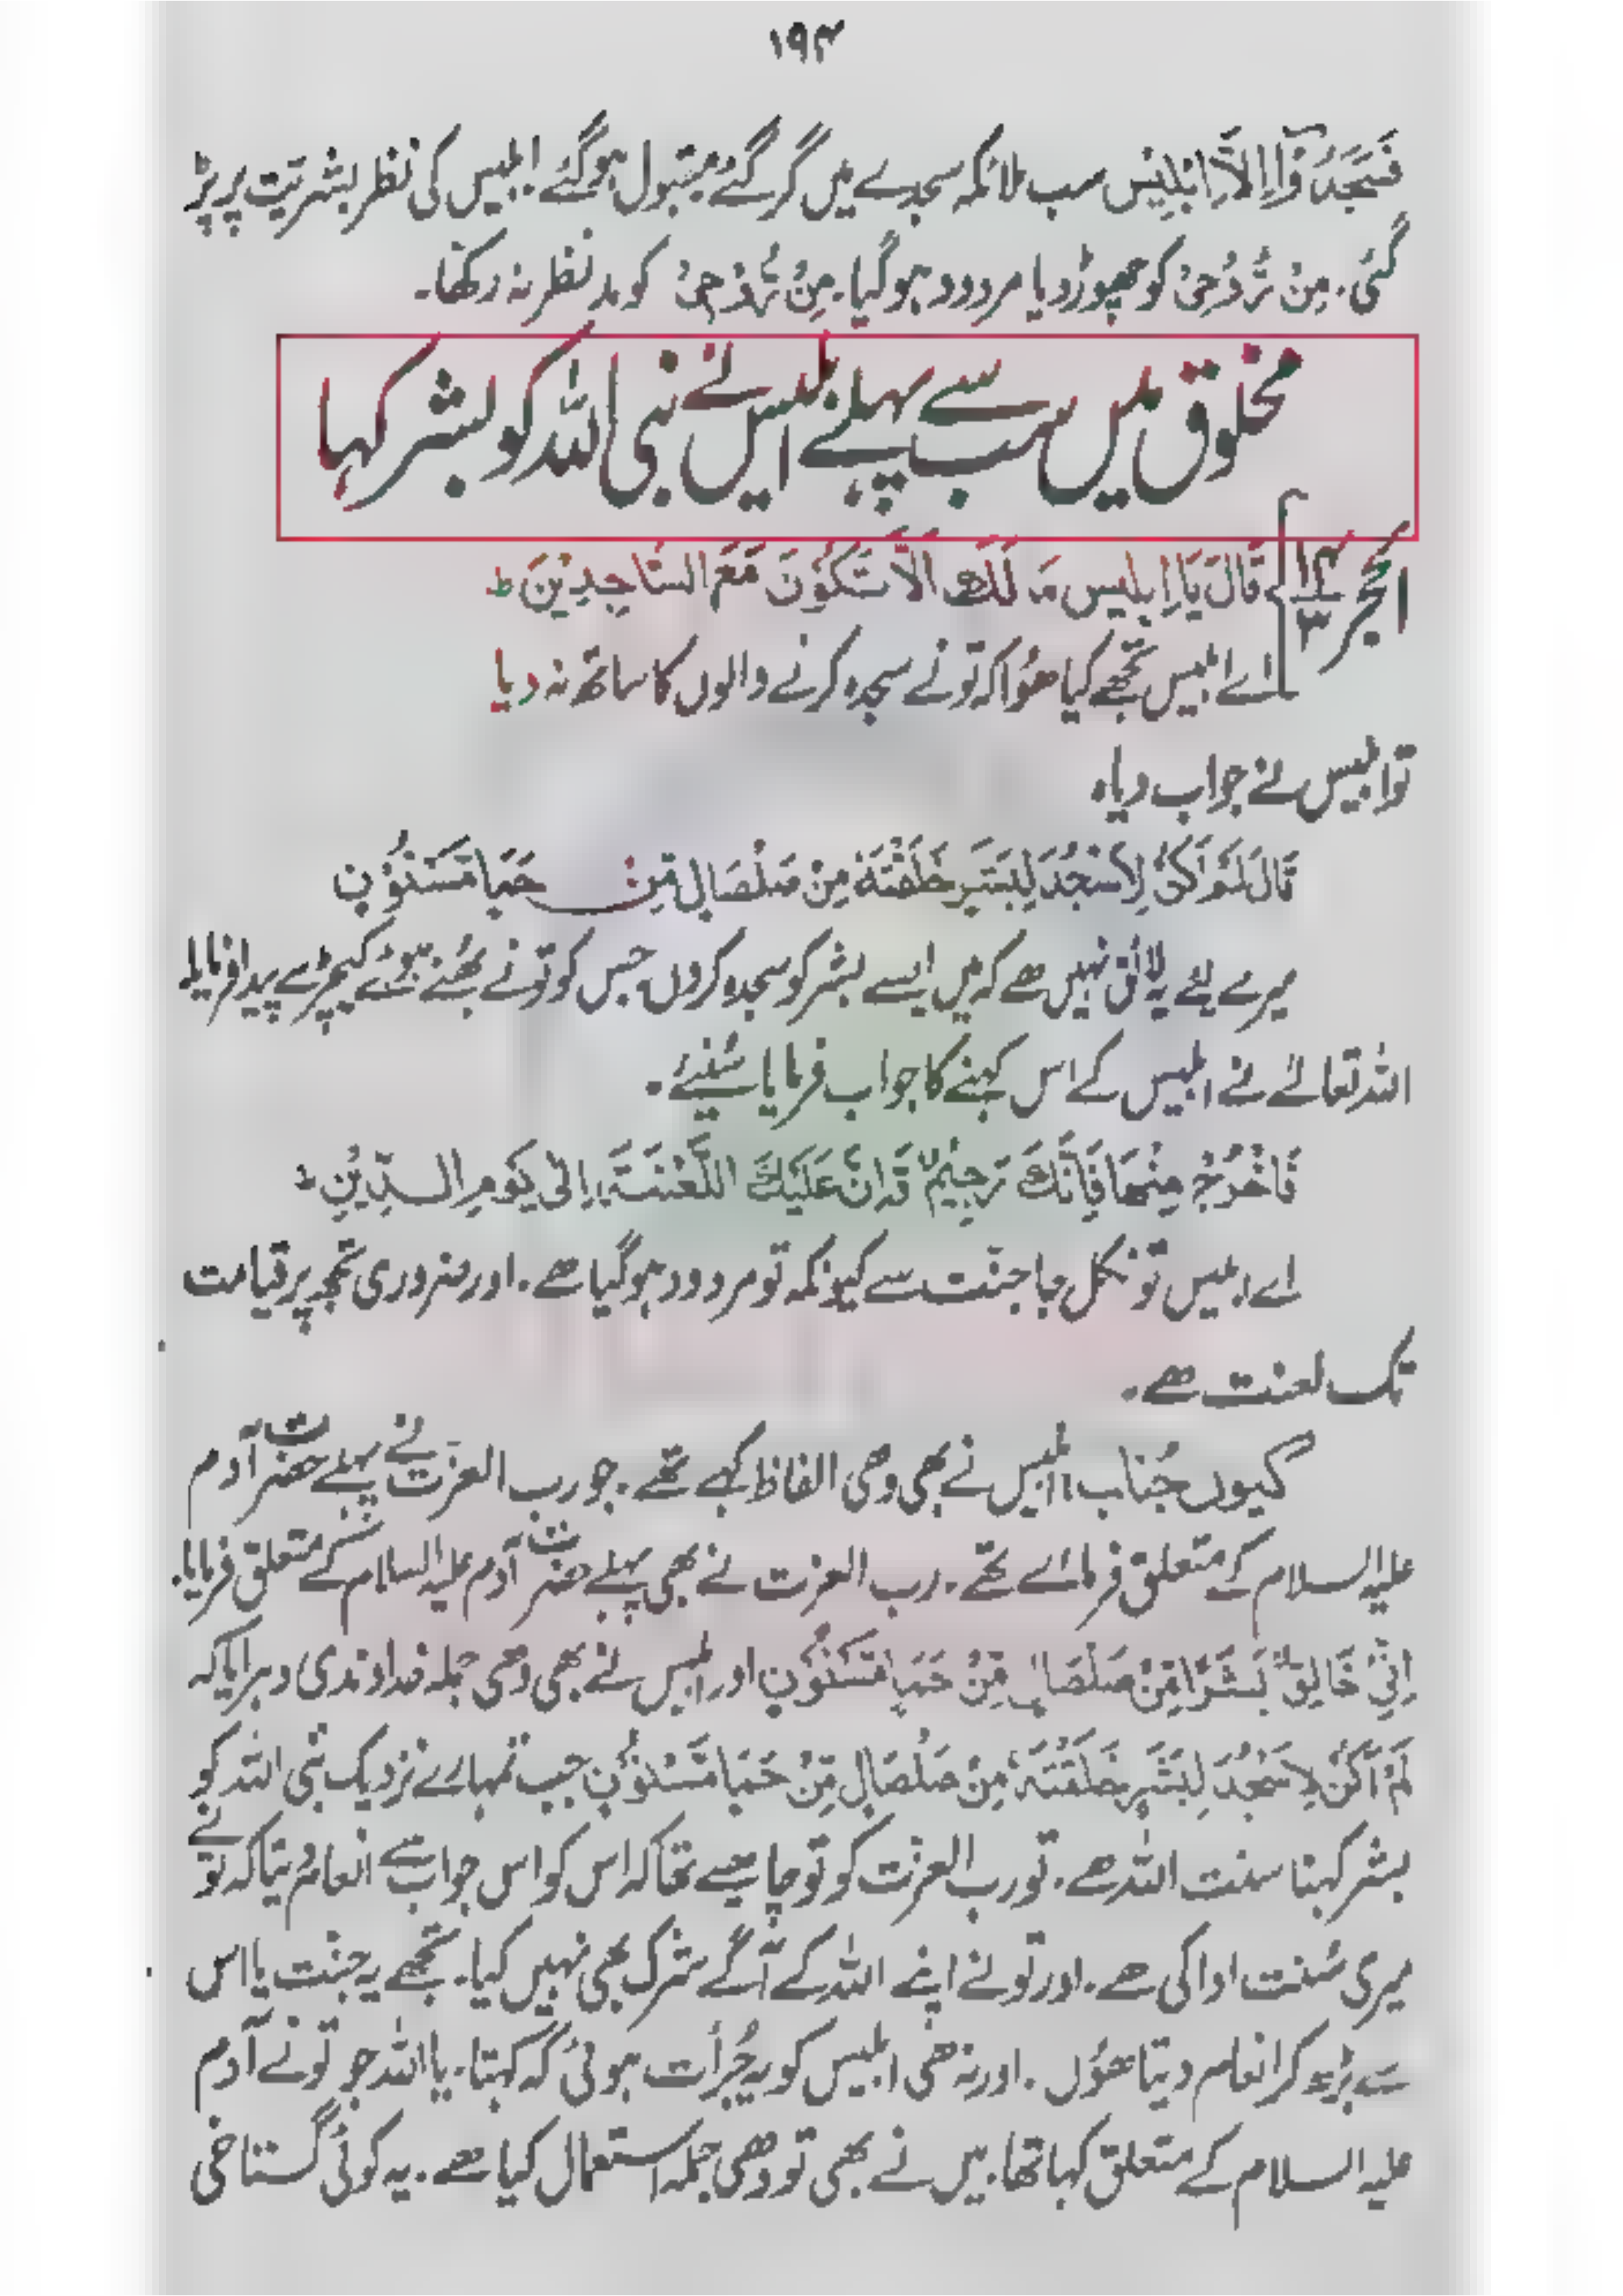 ۱۹۴
فَسَجَدُوْآ اِلَّآ اِبْلِیْس سب ملائکہ سجدے میں گر گئے مقبول ہو گئے ابلیس کی نظر بشریّت پر پڑ
گئی. مِنْ رُّوْحِیْ کو چھوڑ دیا مردود ہو گیا. مِنْ رُّوْحِیْ کو مد نظر نہ رکھا.
مخلوق میں سب سے پہلے ابلیس نے نبی اللہ کو بشر کہا
الحجر ۱۴/۳ قَالَ یَا اِبلیس مَا لَكَ اَلَّا تَكُوْنَ مَعَ السّاجِدِیْنَ ط
اے ابلیس تجھے کیا ھوُا کہ تو نے سجدہ کرنے والوں کا ساتھ نہ دیا
تو ابلیس نے جواب دیا.
قَالَ لَمْ اَكُنْ لِاَسْجُدَ لِبَشَرٍ خَلَقْتَهٗ مِنْ صَلْصَالٍ مِّنْ حَمَاٍ مَّسْنُوْنٍ
میرے لئے یہ لائق نہیں ھے کہ میں ایسے بشر کو سجدہ کروں جس کو تو نے بھُنے ہوئے کیچڑ سے پیدا فرمایا
اللہ تعالےٰ نے ابلیس کے اس کہنے کا جواب فرمایا سُنیئے.
فَاخْرُجْ مِنْهَا فَاِنَّكَ رَجِیْمٌ وَّ اِنَّ عَلَیْكَ اللَّعْنَةَ اِلٰی یَوْمِ الدِّیْنِ ط
اے ابلیس تو نکل جا جنّت سے کیونکہ تو مردود ہو گیا ھے. اور ضروری تجھ پر قیامت
تک لعنت ھے.
کیوں جناب! ابلیس نے بھی وھی الفاظ کہے تھے. جو رب العزت نے پہلے حضرت آدم
علیہ السلام کے متعلق فرمائے تھے. رب العزت نے بھی پہلے حضرت آدم علیہ السلام کے متعلق فرمایا.
اِنِّیْ خَالِقٌۢ بَشَرًا مِّنْ صَلْصَالٍ مِّنْ حَمَاٍ مَّسْنُوْنٍ اور ابلیس نے بھی وھی جملہ خداوندی دہرایا کہ
لَمْ اَكُنْ لِاَسْجُدَ لِبَشَرٍ خَلَقْتَهٗ مِنْ صَلْصَالٍ مِّنْ حَمَاٍ مَّسْنُوْنٍ جب تمہارے نزدیک نبی اللہ کو
بشر کہنا سنت اللہ ھے. تو رب العزت کو تو چاہیے تھا کہ اس کو اس جواب سے انعام دیتا کہ تو نے
میری سُنت ادا کی ھے. اور تو نے اپنے اللہ کے آگے شرک بھی نہیں کیا. تجھے یہ جنّت یا اس
سے بڑھ کر انعام دیتا ھوُں. اور نہ ھی ابلیس کو یہ جُرأت ہوئی کہ کہتا. یا اللہ جو تو نے آدم
علیہ السلام کے متعلق کہا تھا. میں نے بھی تو وھی جملہ استعمال کیا ھے. یہ کوئی گستاخی